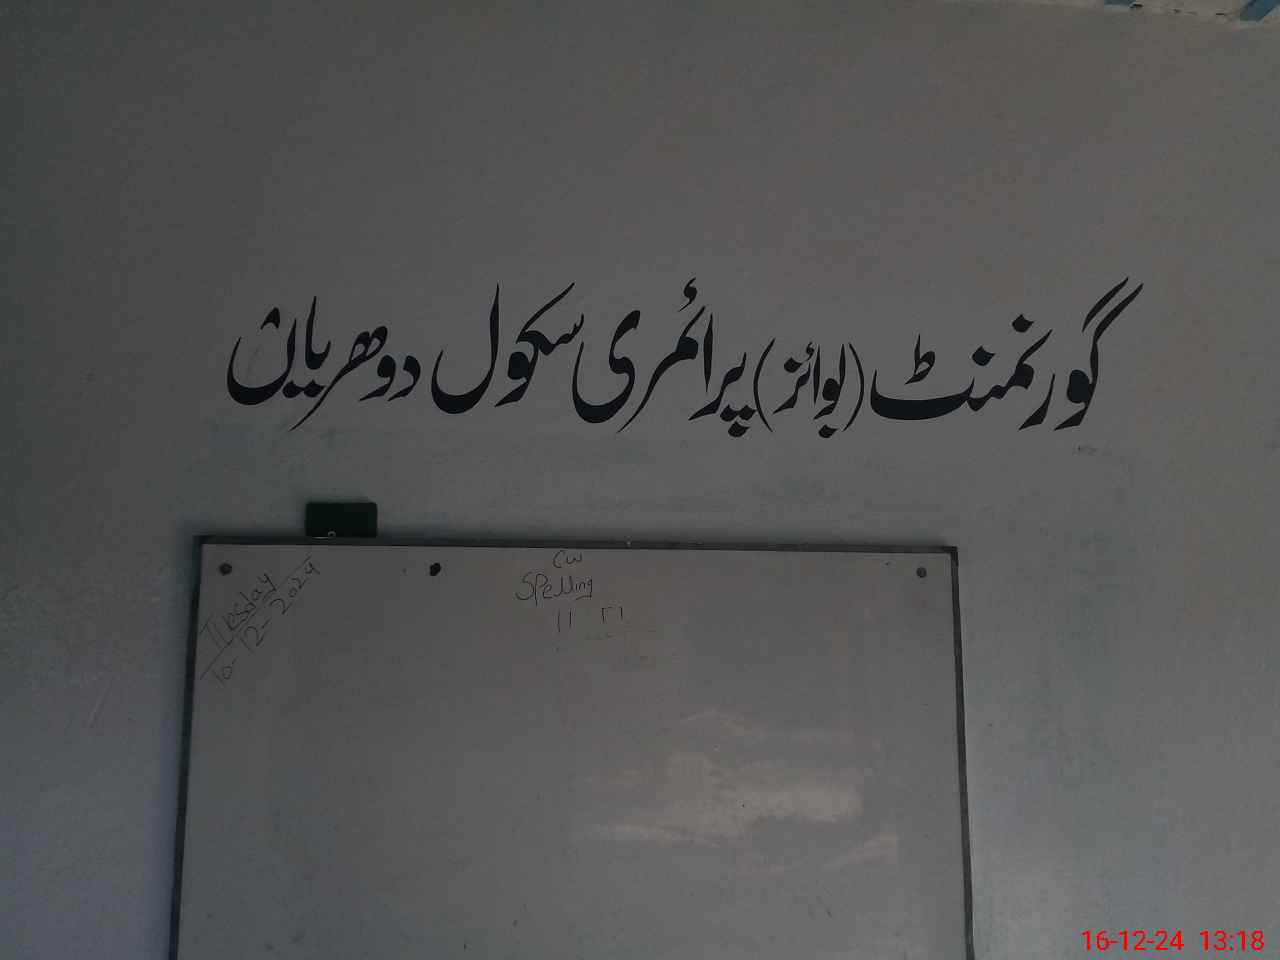 گورنمنٹ (بوائز) پرائمری سکول دوھریاں
Tuesday
10-12-2024
CW
Spelling
16-12-24 13:18